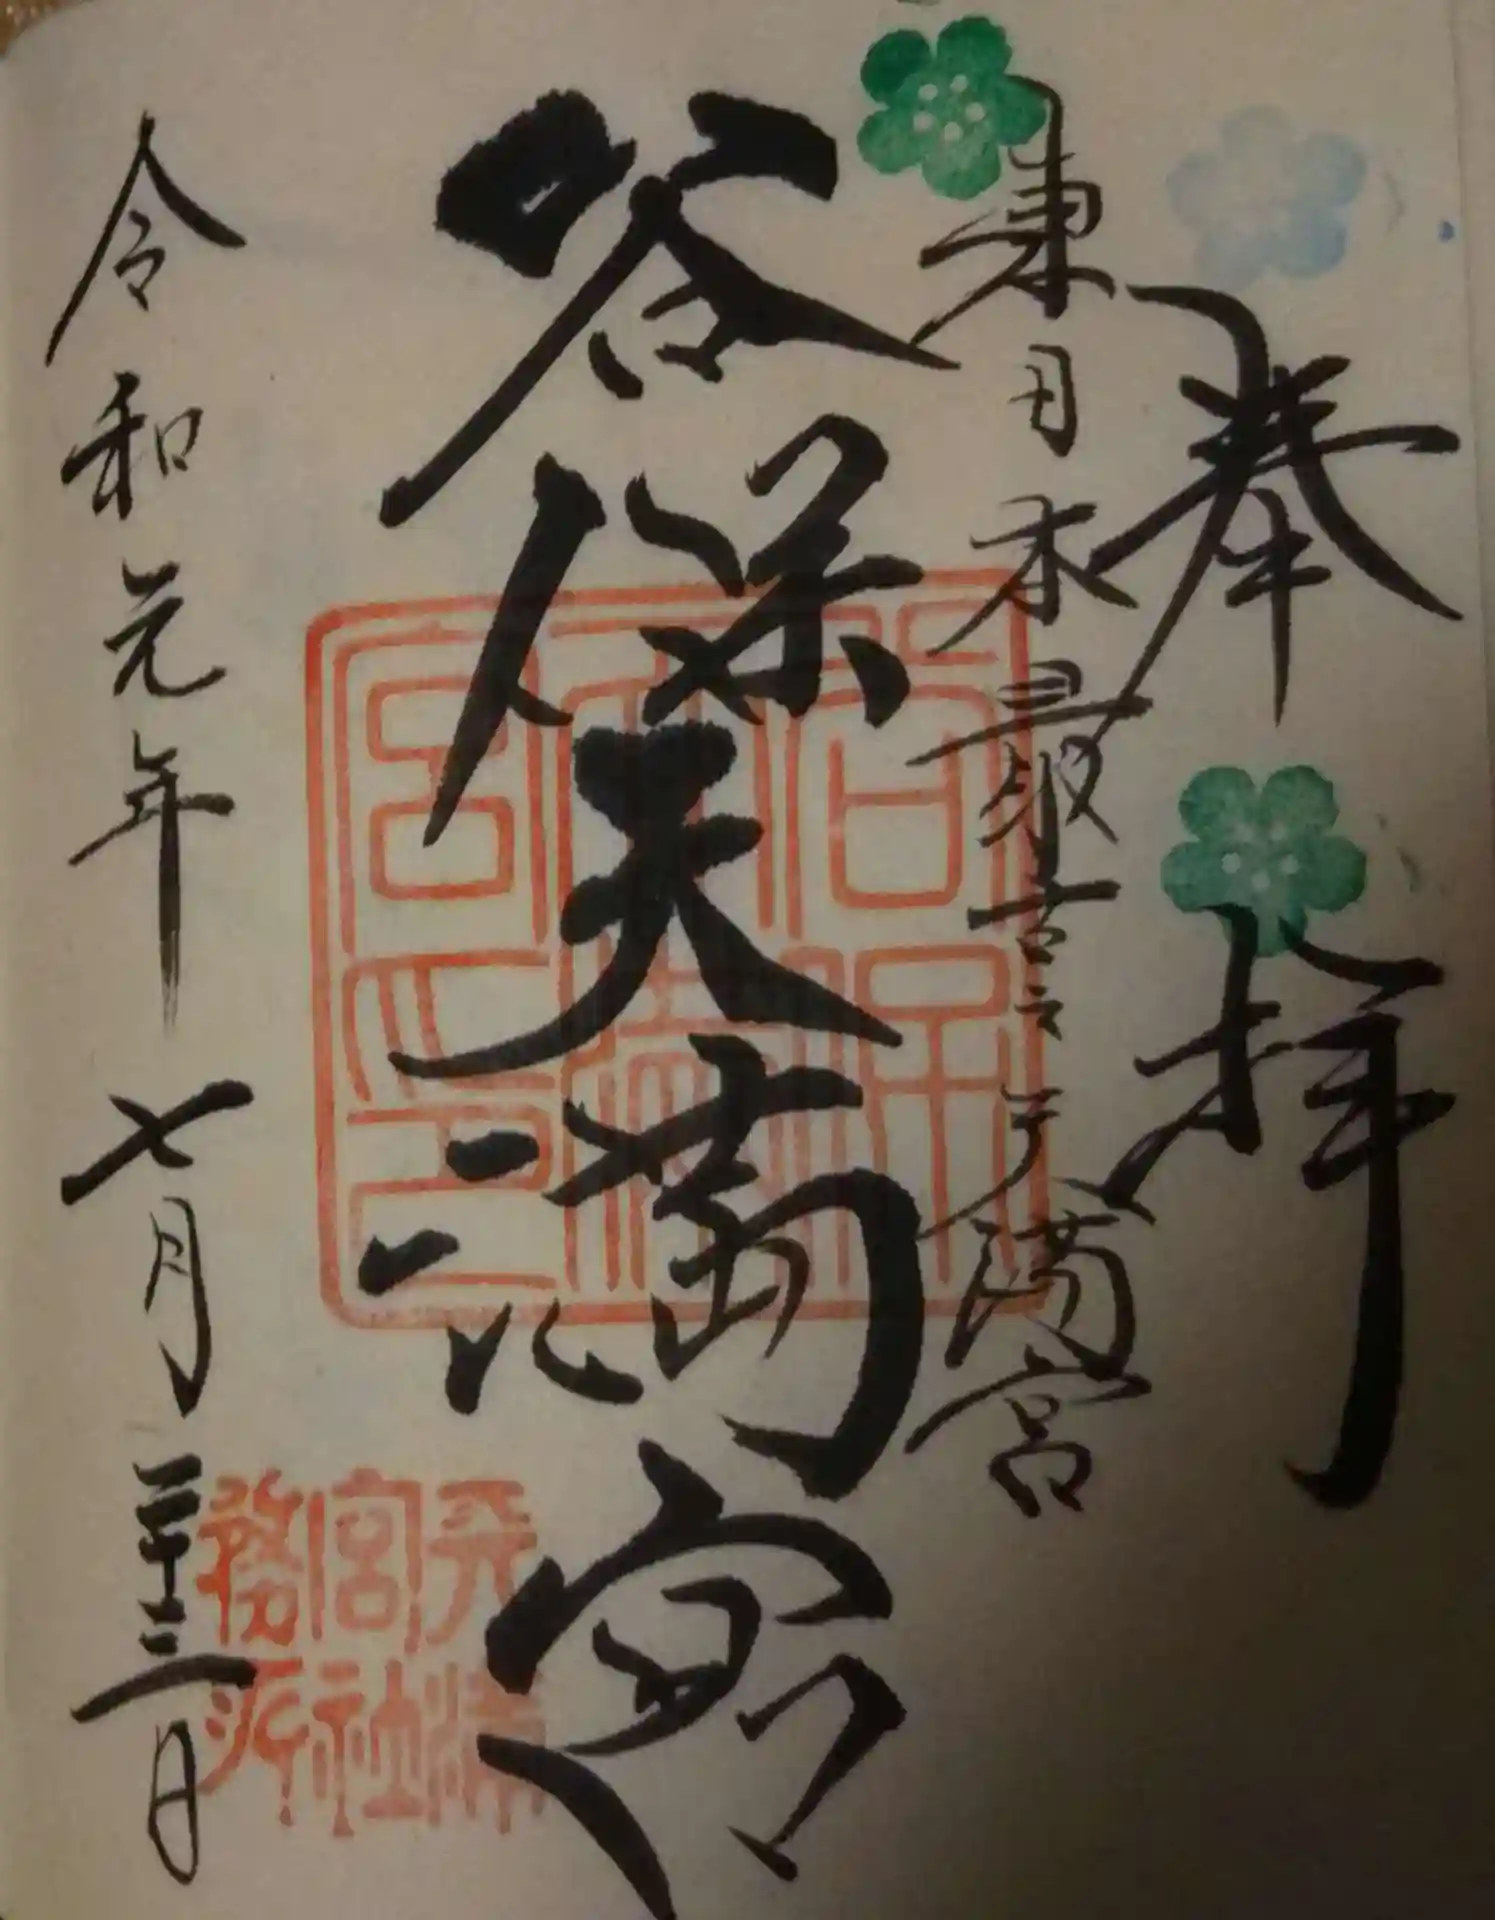 奉拝
東日本最古之天満宮
谷保天満宮
令和元年七月二十三日
天満宮社務所